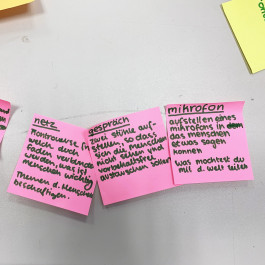 netz
Kontroverse
welch durch
Faden verbunden
werden, was ist
menschen wichtig
Themen d. Menschen
beschäftigen.
gespräch
zwei stühle auf-
stellen, so dass
sich die menschen
nicht sehen und
vorbehaltsfrei
austauschen sollen
mikrofon
aufstellen eines
mikrofons in dem
das menschen
etwas sagen
können
was möchtest du
mit d. welt teilen